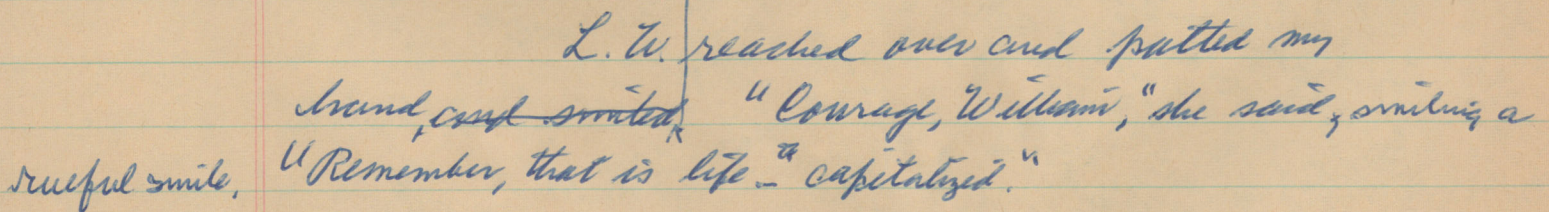 L. W. reached over and patted my
hand, and smiled. "Courage, William," she said, smiling a
rueful smile. "Remember, that is life - capitalized."